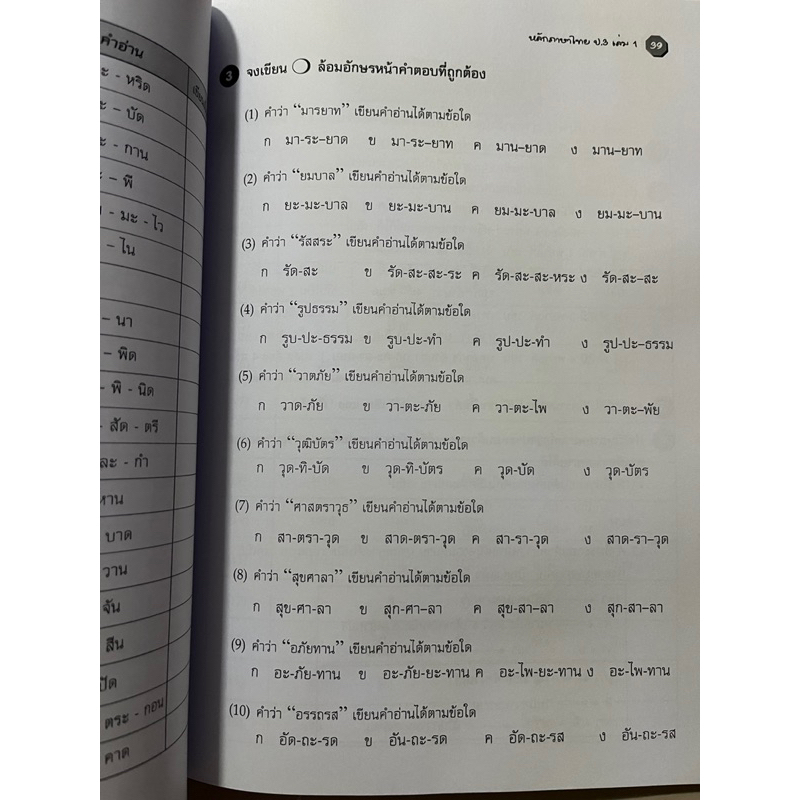 คำอ่าน
ะ - หริด
ะ – บัด
ะ - กาน
ะ – พี
- มะ - ไว
– ไน
– นา
– พิด
- พิ - นิด
- สัด - ตรี
ละ - กำ
หาน
บาด
วาน
จัน
สืน
ปัด
ตระ - กอน
คาด
หลักภาษาไทย ป.3 เล่ม 1 39
3 จงเขียน ล้อมอักษรหน้าคำตอบที่ถูกต้อง
(1) คำว่า “มารยาท” เขียนคำอ่านได้ตามข้อใด
ก มา-ระ–ยาด ข มา-ระ–ยาท ค มาน–ยาด ง มาน–ยาท
(2) คำว่า “ยมบาล” เขียนคำอ่านได้ตามข้อใด
ก ยะ-มะ-บาล ข ยะ-มะ-บาน ค ยม-มะ-บาล ง ยม-มะ–บาน
(3) คำว่า “รัสสระ” เขียนคำอ่านได้ตามข้อใด
ก รัด-สะ ข รัด-สะ-สะ-ระ ค รัด-สะ-สะ-หระ ง รัด-สะ–สะ
(4) คำว่า “รูปธรรม” เขียนคำอ่านได้ตามข้อใด
ก รูบ-ปะ-ธรรม ข รูบ-ปะ-ทำ ค รูป-ปะ-ทำ ง รูป-ปะ–ธรรม
(5) คำว่า “วาตภัย” เขียนคำอ่านได้ตามข้อใด
ก วาด-ภัย ข วา-ตะ-ภัย ค วา-ตะ-ไพ ง วา-ตะ–พัย
(6) คำว่า “วุฒิบัตร” เขียนคำอ่านได้ตามข้อใด
ก วุด-ทิ-บัด ข วุด-ทิ-บัตร ค วุด-บัด ง วุด-บัตร
(7) คำว่า “ศาสตราวุธ” เขียนคำอ่านได้ตามข้อใด
ก สา-ตรา-วุด ข สาด-ตรา-วุด ค สา-รา-วุด ง สาด-รา–วุด
(8) คำว่า “สุขศาลา” เขียนคำอ่านได้ตามข้อใด
ก สุข-ศา-ลา ข สุก-ศา–ลา ค สุข-สา–ลา ง สุก-สา–ลา
(9) คำว่า “อภัยทาน” เขียนคำอ่านได้ตามข้อใด
ก อะ-ภัย-ทาน ข อะ-ภัย-ยะ-ทาน ค อะ-ไพ-ยะ-ทาน ง อะ-ไพ-ทาน
(10) คำว่า “อรรถรส” เขียนคำอ่านได้ตามข้อใด
ก อัด-ถะ-รด ข อัน-ถะ-รด ค อัด-ถะ-รส ง อัน-ถะ-รส